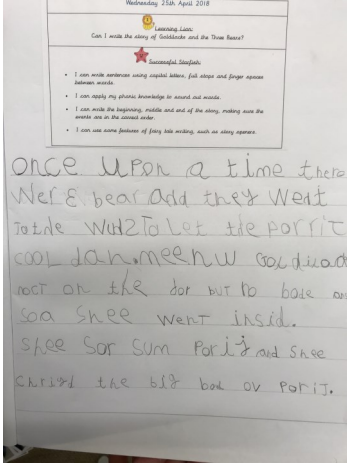 Wednesday 25th April 2018
Learning Lion:
Can I write the story of Goldilocks and the Three Bears?
Successful Starfish:
• I can write sentences using capital letters, full stops and finger spaces
between words.
• I can apply my phonic knowledge to sound out words.
• I can write the beginning, middle and end of the story, making sure the
events are in the correct order.
• I can use some features of fairy tale writing, such as story openers.
once upon a time there
Wer 3 bear and they Went
To the WudzTo Let the porrit
cool dan. meenw
noct on the dor but no bode an
soa Shee went insid.
Shee Sor Sum Porij and Shee
the big bol ov Porij.